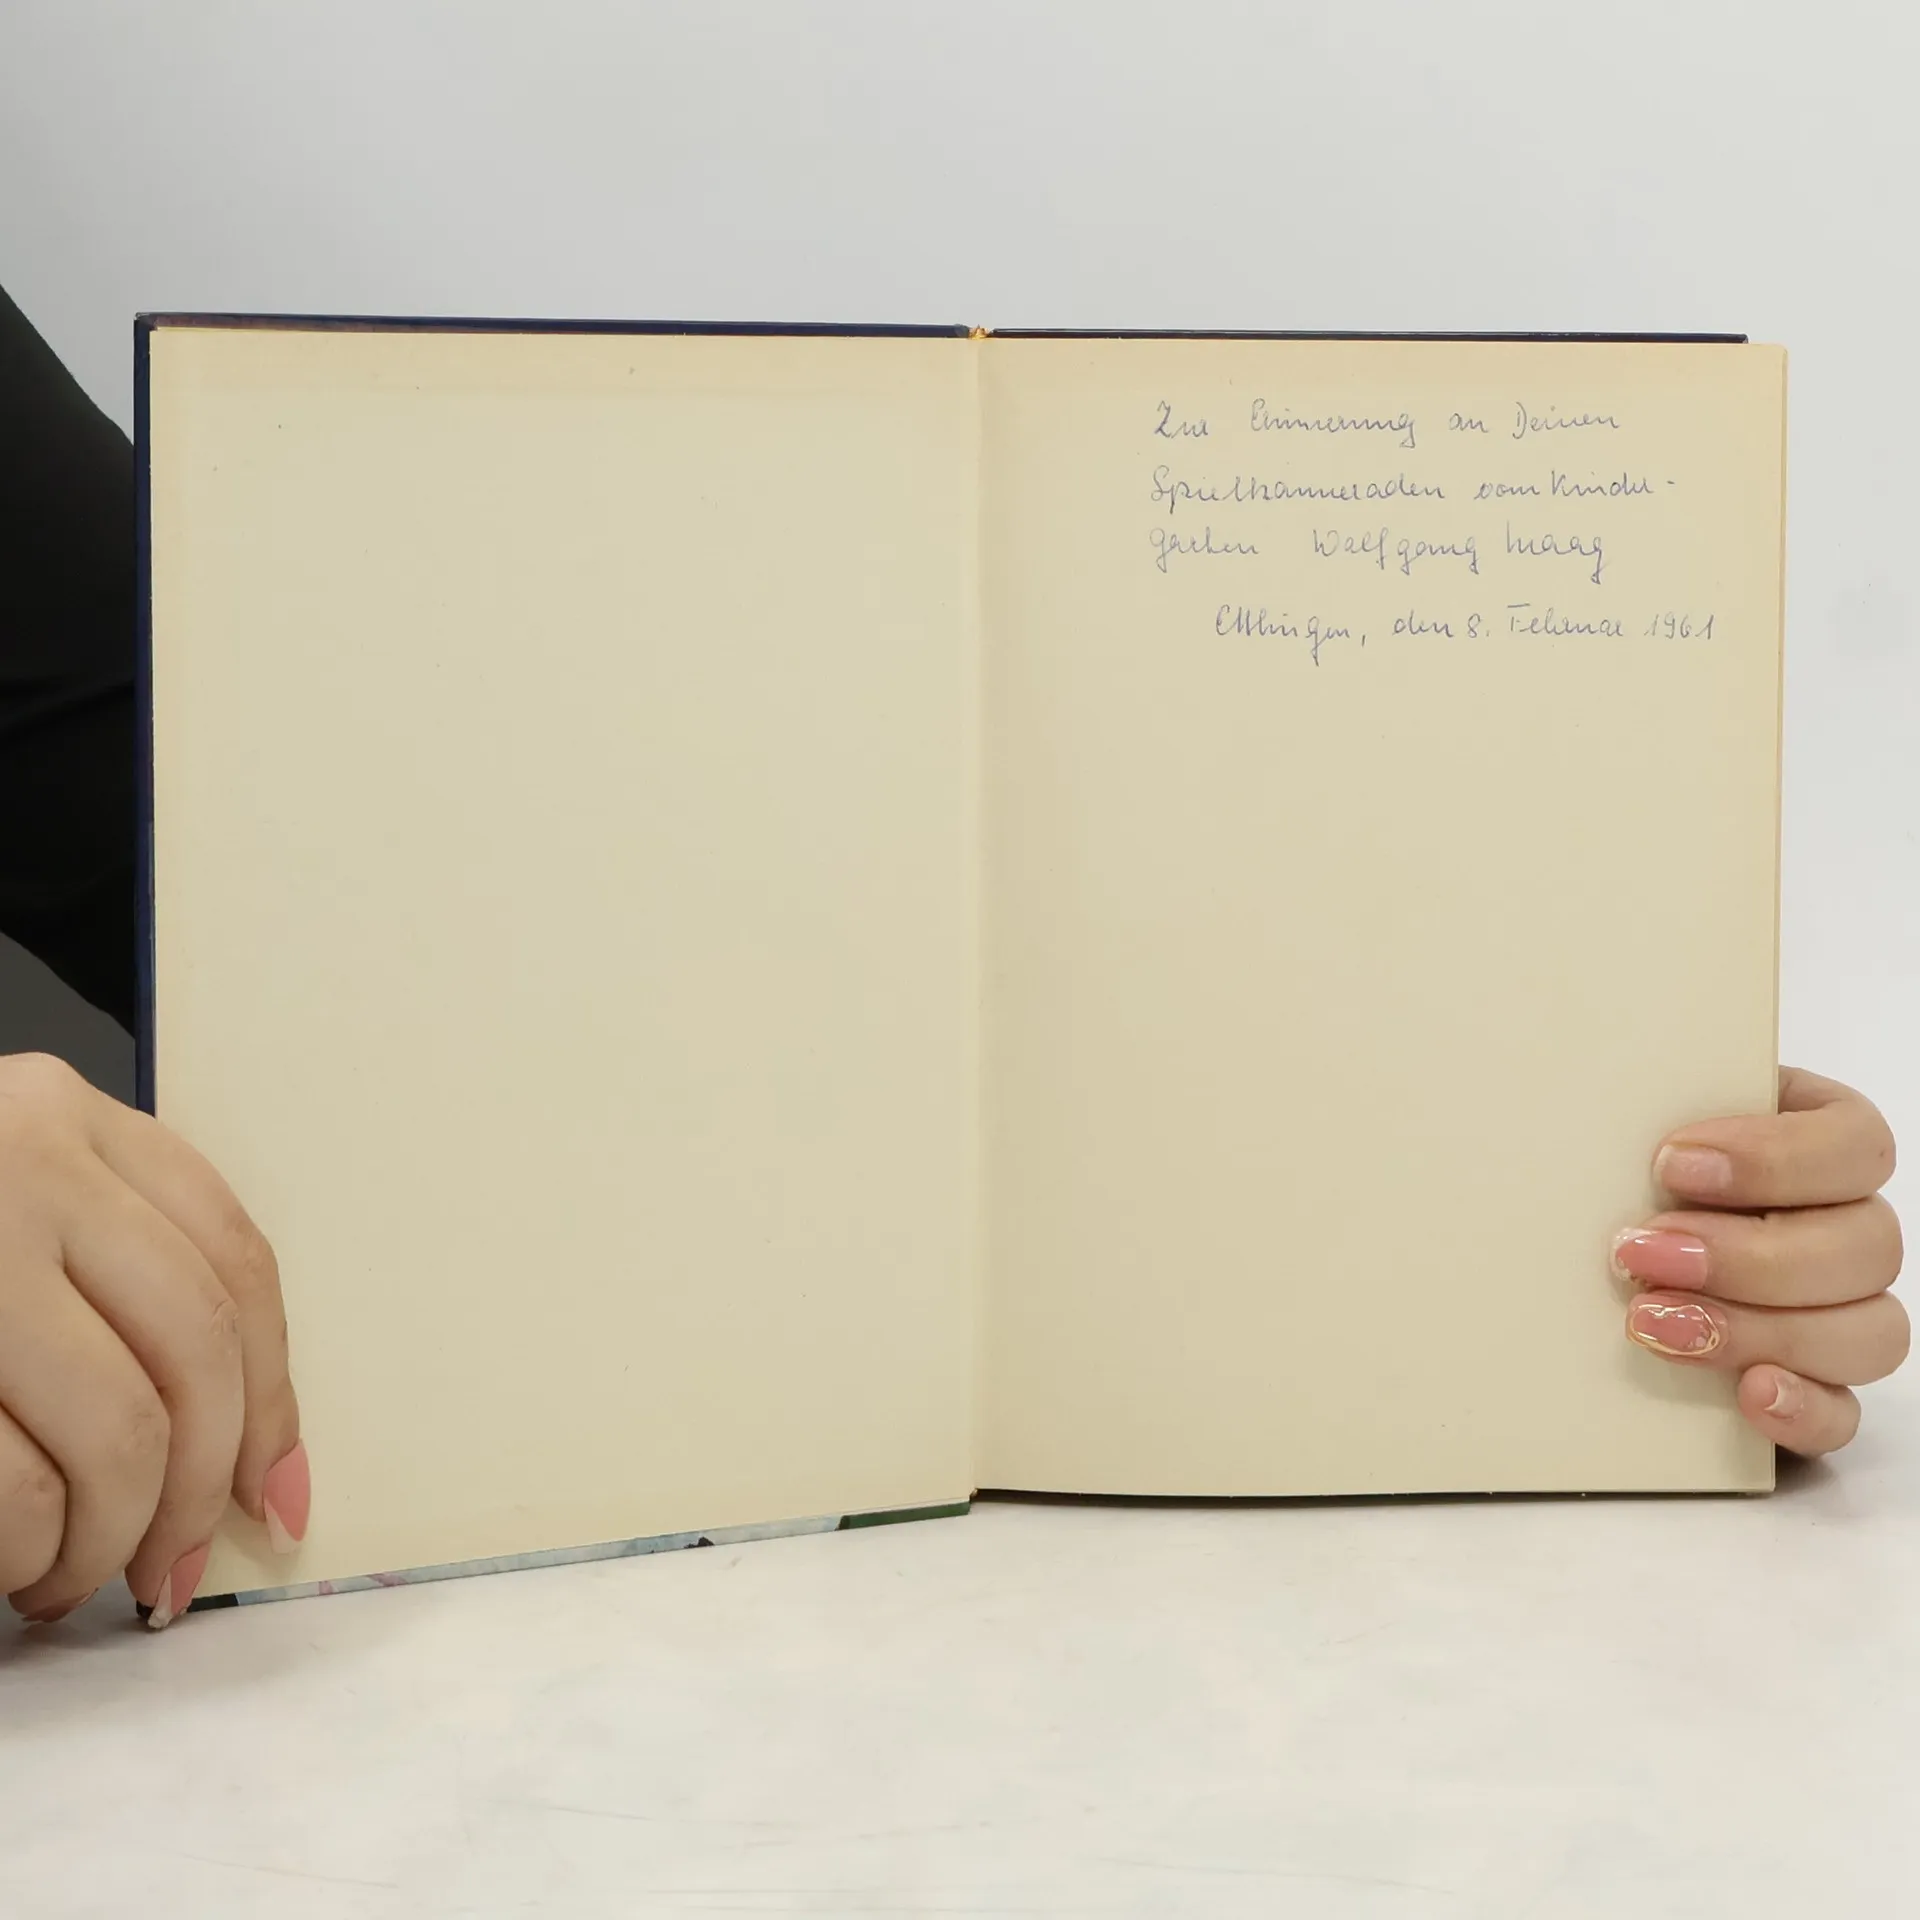 Zur Erinnerung an Deinen
Spielkameraden vom Kinder-
garten Wolfgang Maag
Ettlingen, den 8. Februar 1961